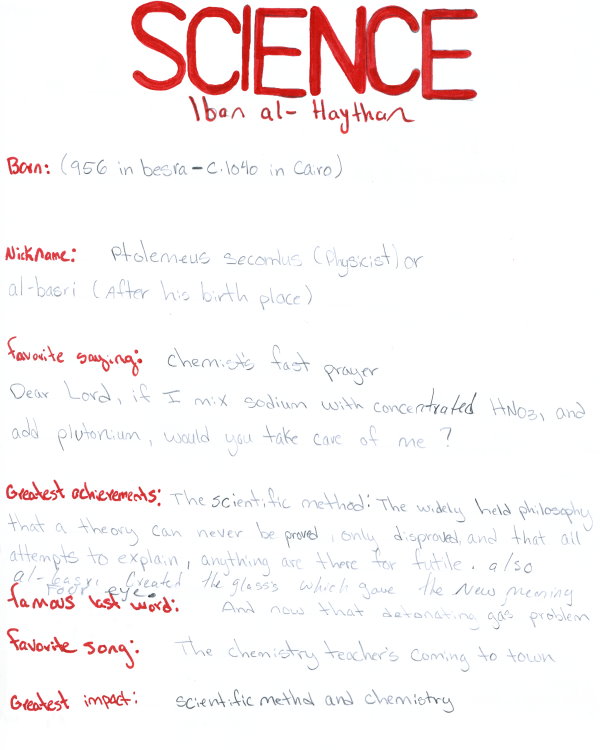 SCIENCE
Iban al-Haythan
Born: (956 in besra - C.1040 in Cairo)
Nickname: Ptolemeus secomlus (Physicist) or
al-basri (After his birth place)
favorite saying: chemist's fast prayer
Dear Lord, if I mix sodium with concentrated HNO3, and
add plutonium, would you take care of me?
Greatest achievements: The scientific method: The widely held philosophy
that a theory can never be proved, only disproved, and that all
attempts to explain, anything are there for futile. also
al- Created the glasss which gave the New meming
Four eye.
famous last word: And now that detonating gas problem
favorite song: The chemistry teacher's coming to town
Greatest impact: scientific method and chemistry